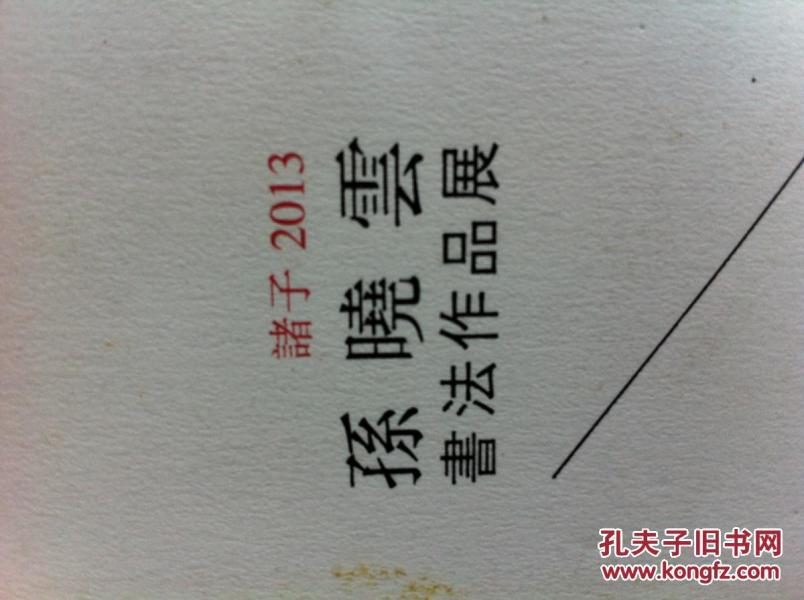 諸子 2013
孫曉雲
書法作品展
孔夫子旧书网
www.kongfz.com